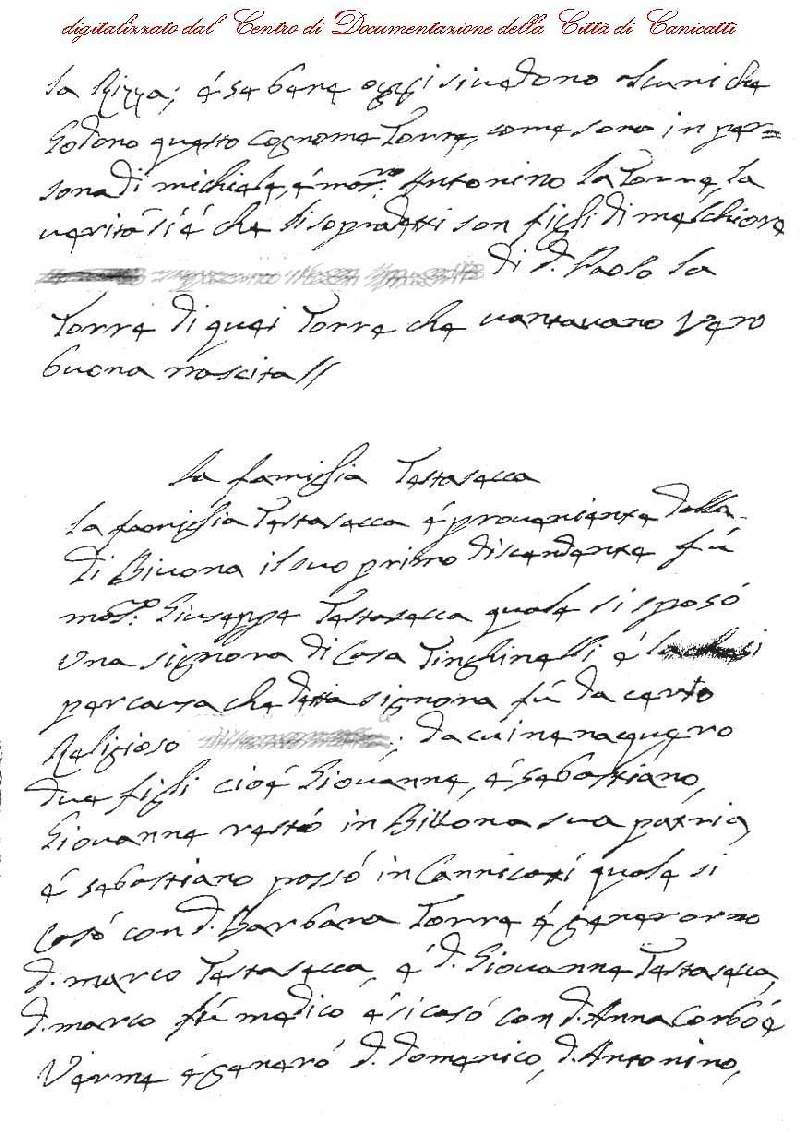 digitalizzato dal Centro di Documentazione della Città di Canicattì
la Rizza; é se bene oggi si vedono alcuni che
Godono questo Cognome Torre, come sono in per=
sona di michiele, é mos.ro Antonino la Torre, la
verità si é che li sopradetti son figli di melchiore
di d. Paolo la
Torre di quei Torre che vantavano vero
buona nascita//
la famiglia Testasecca
la famiglia Testasecca é proveniente dalla
di Bivona il suo primo discendente fú
mos.ro Giuseppe Testasecca quale si sposó
una signora di Casa Tinghinelli é
per causa che detta signora fú da certo
Religioso ; da cui ne naquero
due figli cioé Giovanne, é Sebastiano,
Giovanne restó in Billona sua patria
é sebastiano passó in Cannicati quale si
Casó con d. Barbara Torre é generorno
d. marco Testasecca, é d. Giovanne Testasecca,
d. marco fú medico é si casó con d. Anna Corbó é
Verme é generó d. Domenico, d. Antonino,